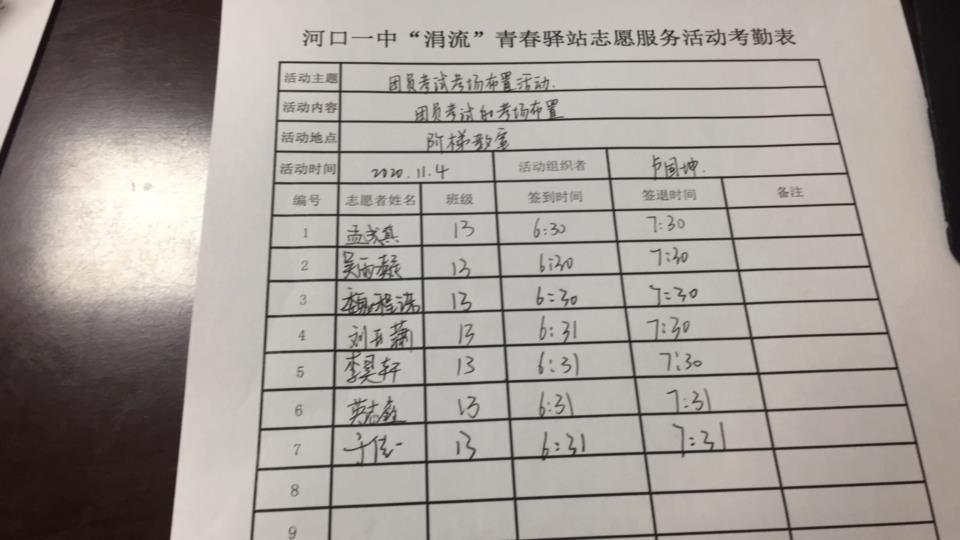 河口一中“涓流”青春驿站志愿服务活动考勤表
活动主题 团员考试考场布置活动.
活动内容 团员考试的考场布置
活动地点 阶梯教室
活动时间 2020.11.4 活动组织者 卢国坤.
编号 志愿者姓名 班级 签到时间 签退时间 备注
1 孟 真 13 6:30 7:30
2 吴雨 13 6:30 7:30
3 魏程 13 6:30 7:30
4 刘 13 6:31 7:30
5 李昊轩 13 6:31 7:30
6 英志鑫 13 6:31 7:31
7 于佳一 13 6:31 7:31
8
9